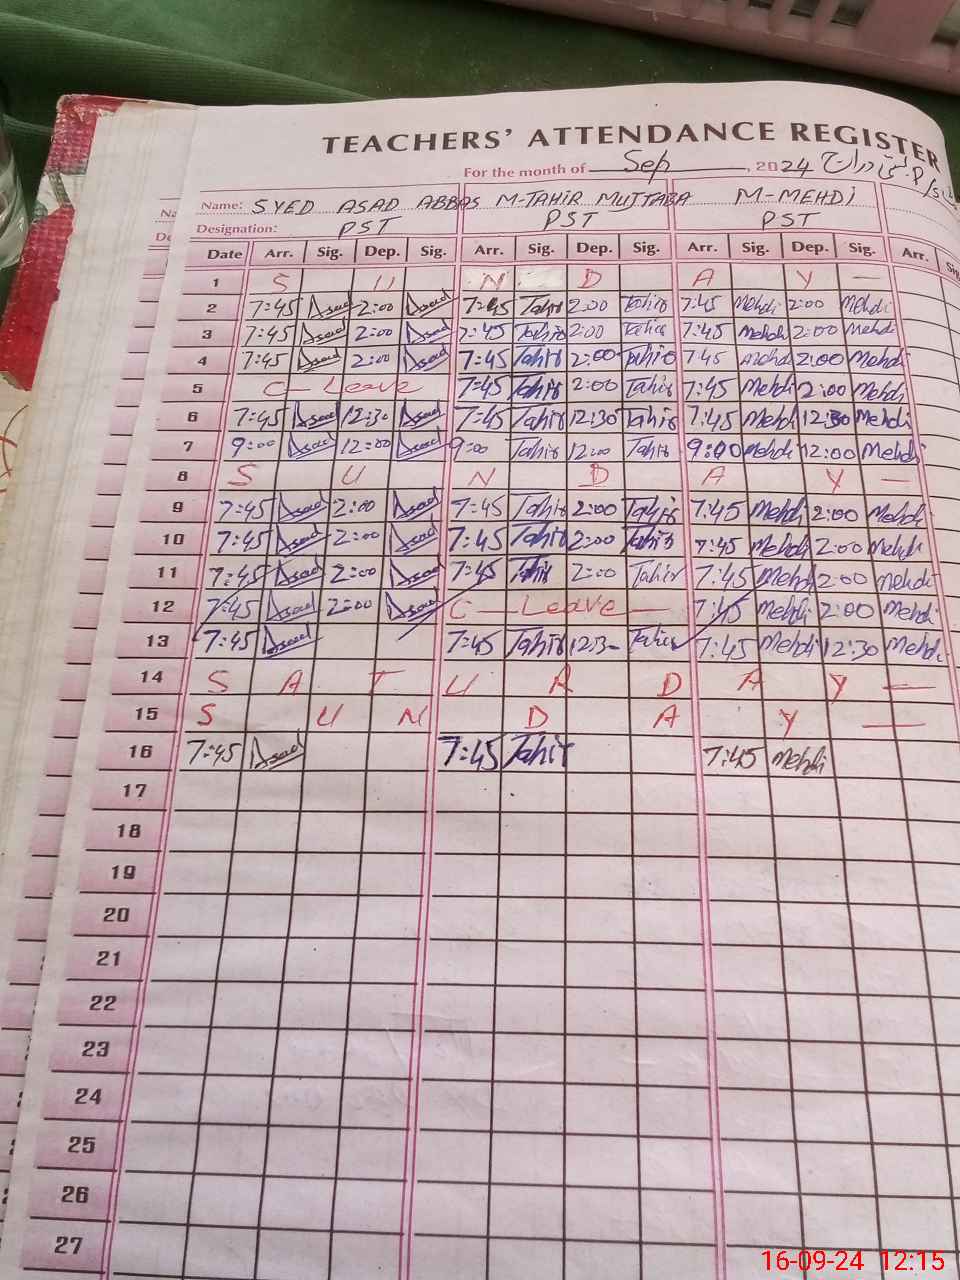 TEACHERS' ATTENDANCE REGISTER
For the month of Sep, 2024
Name: SYED ASAD ABBAS M-TAHIR MUJTABA M-MEHDI
Designation: PST PST PST
Date Arr. Sig. Dep. Sig. Arr. Sig. Dep. Sig. Arr. Sig. Dep. Sig. Arr.
1 S U N D A Y —
2 7:45 Asad 2:00 Asad 7:45 Tahir 2:00 Tahir 7:45 Mehdi 2:00 Mehdi
3 7:45 Asad 2:00 Asad 7:45 Tahir 2:00 Tahir 7:45 Mehdi 2:00 Mehdi
4 7:45 Asad 2:00 Asad 7:45 Tahir 2:00 Tahir 7:45 Mehdi 2:00 Mehdi
5 C - Leave 7:45 Tahir 2:00 Tahir 7:45 Mehdi 2:00 Mehdi
6 7:45 Asad 12:30 Asad 7:45 Tahir 12:30 Tahir 7:45 Mehdi 12:30 Mehdi
7 9:00 Asad 12:00 Asad 9:00 Tahir 12:00 Tahir 9:00 Mehdi 12:00 Mehdi
8 S U N D A Y —
9 7:45 Asad 2:00 Asad 7:45 Tahir 2:00 Tahir 7:45 Mehdi 2:00 Mehdi
10 7:45 Asad 2:00 Asad 7:45 Tahir 2:00 Tahir 7:45 Mehdi 2:00 Mehdi
11 7:45 Asad 2:00 Asad 7:45 Tahir 2:00 Tahir 7:45 Mehdi 2:00 Mehdi
12 7:45 Asad 2:00 Asad C — Leave — 7:45 Mehdi 2:00 Mehdi
13 7:45 Asad 7:45 Tahir 12:3- Tahir 7:45 Mehdi 12:30 Mehdi
14 S A T U R D A Y —
15 S U N D A Y —
16 7:45 Asad 7:45 Tahir 7:45 Mehdi
17
18
19
20
21
22
23
24
25
26
27
16-09-24 12:15